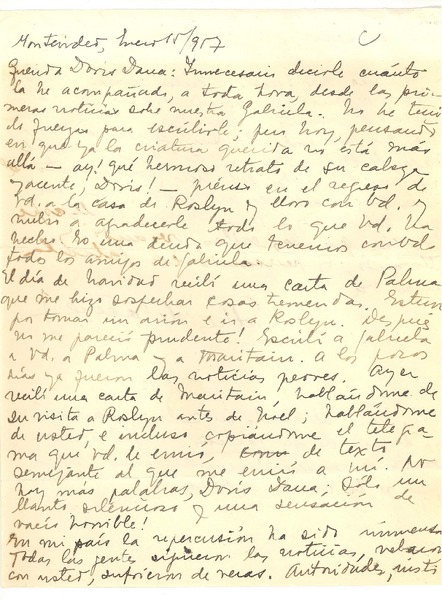 Montevideo, Enero 15/957
Querida Doris Dana: Innecesario decirle cuánto
la he acompañado, a toda hora, desde las pri-
meras noticias sobre nuestra Gabriela. No he teni-
do fuerzas para escribirle; pero hoy, pensando
en que ya la criatura querida no está más
allá — ay! qué hermoso retrato de su cabeza
yacente, Doris! — pienso en el regreso de
Vd. a la casa de Roslyn y lloro con Vd. y
vuelvo a agradecerle todo lo que Vd. ha
hecho. Es una deuda que tenemos con Vd.
todos los amigos de Gabriela.
El día de Navidad recibí una carta de Palma
que me hizo sospechar cosas tremendas. Estuve
por tomar un avión e ir a Roslyn. Después
no me pareció prudente! Escribí a Gabriela
a Vd. a Palma y a Maritain. A los pocos
días ya fueron las noticias peores. Ayer
recibí una carta de Maritain, hablándome de
su visita a Roslyn antes de Noel; hablándome
de usted, e incluso copiándome el telegra-
ma que Vd. le envió, de texto
semejante al que me envió a mí. No
hay más palabras, Doris Dana; sólo un
llanto silencioso y una sensación de
vacío horrible!
En mi país la repercusión ha sido inmensa
Todas las gentes siguieron las noticias, velaron
con usted, sufrieron de veras. Autoridades,